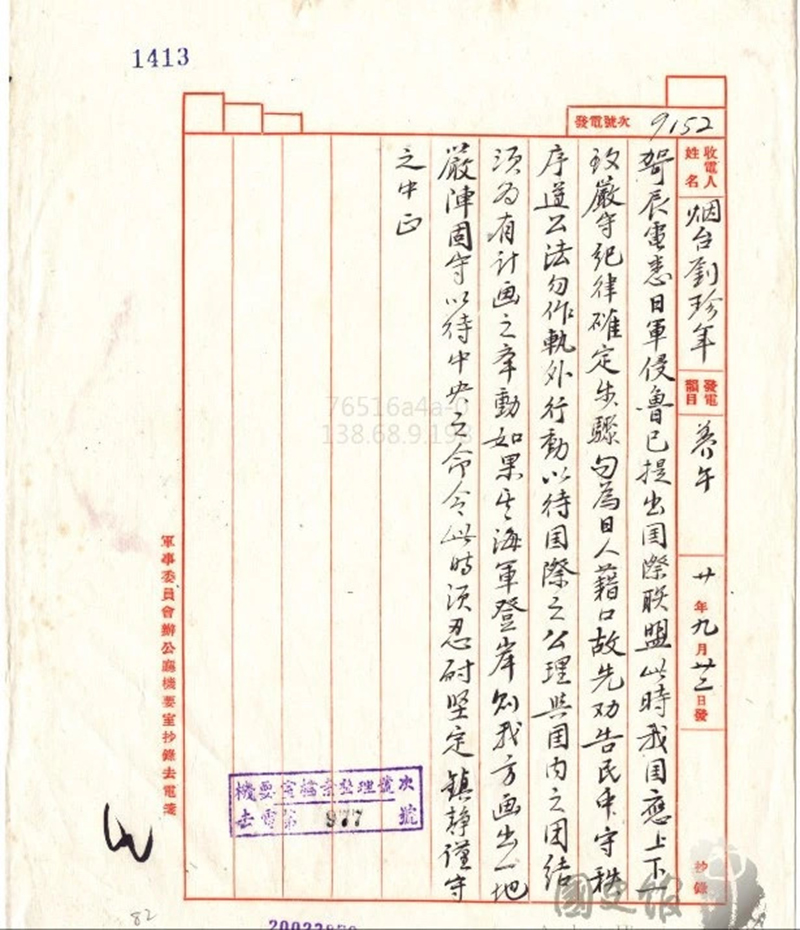 1413
發電號次 9152
收電人姓名 烟台劉珍年 發電韻目 養午 廿年九月廿三日發 抄錄
哿辰電悉日軍侵魯已提出国際联盟此時我国應上下一
致嚴守紀律確定步驟勿為日人藉口故先劝告民中守秩
序道公法勿作軌外行動以待国際之公理與国内之团結
须為有計画之举動如果其海軍登岸则我方画出一地
嚴陣固守以待中央之命令此時须忍耐坚定镇静谨守
之中正
軍事委員會辦公廳機要室抄錄去電箋
機要室檔案整理號次
去電第 977 號
76516a4a-0
138.68.9.198
82
國史館